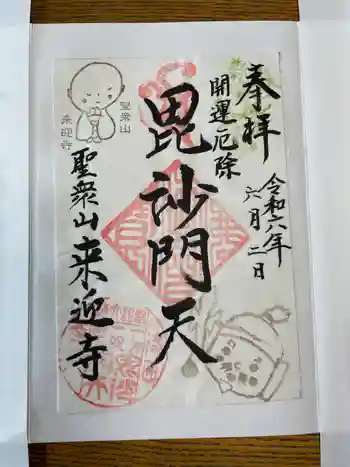 奉拝
令和六年
六月二日
開運厄除
毘沙門天
聖衆山
来迎寺
聖衆山来迎寺